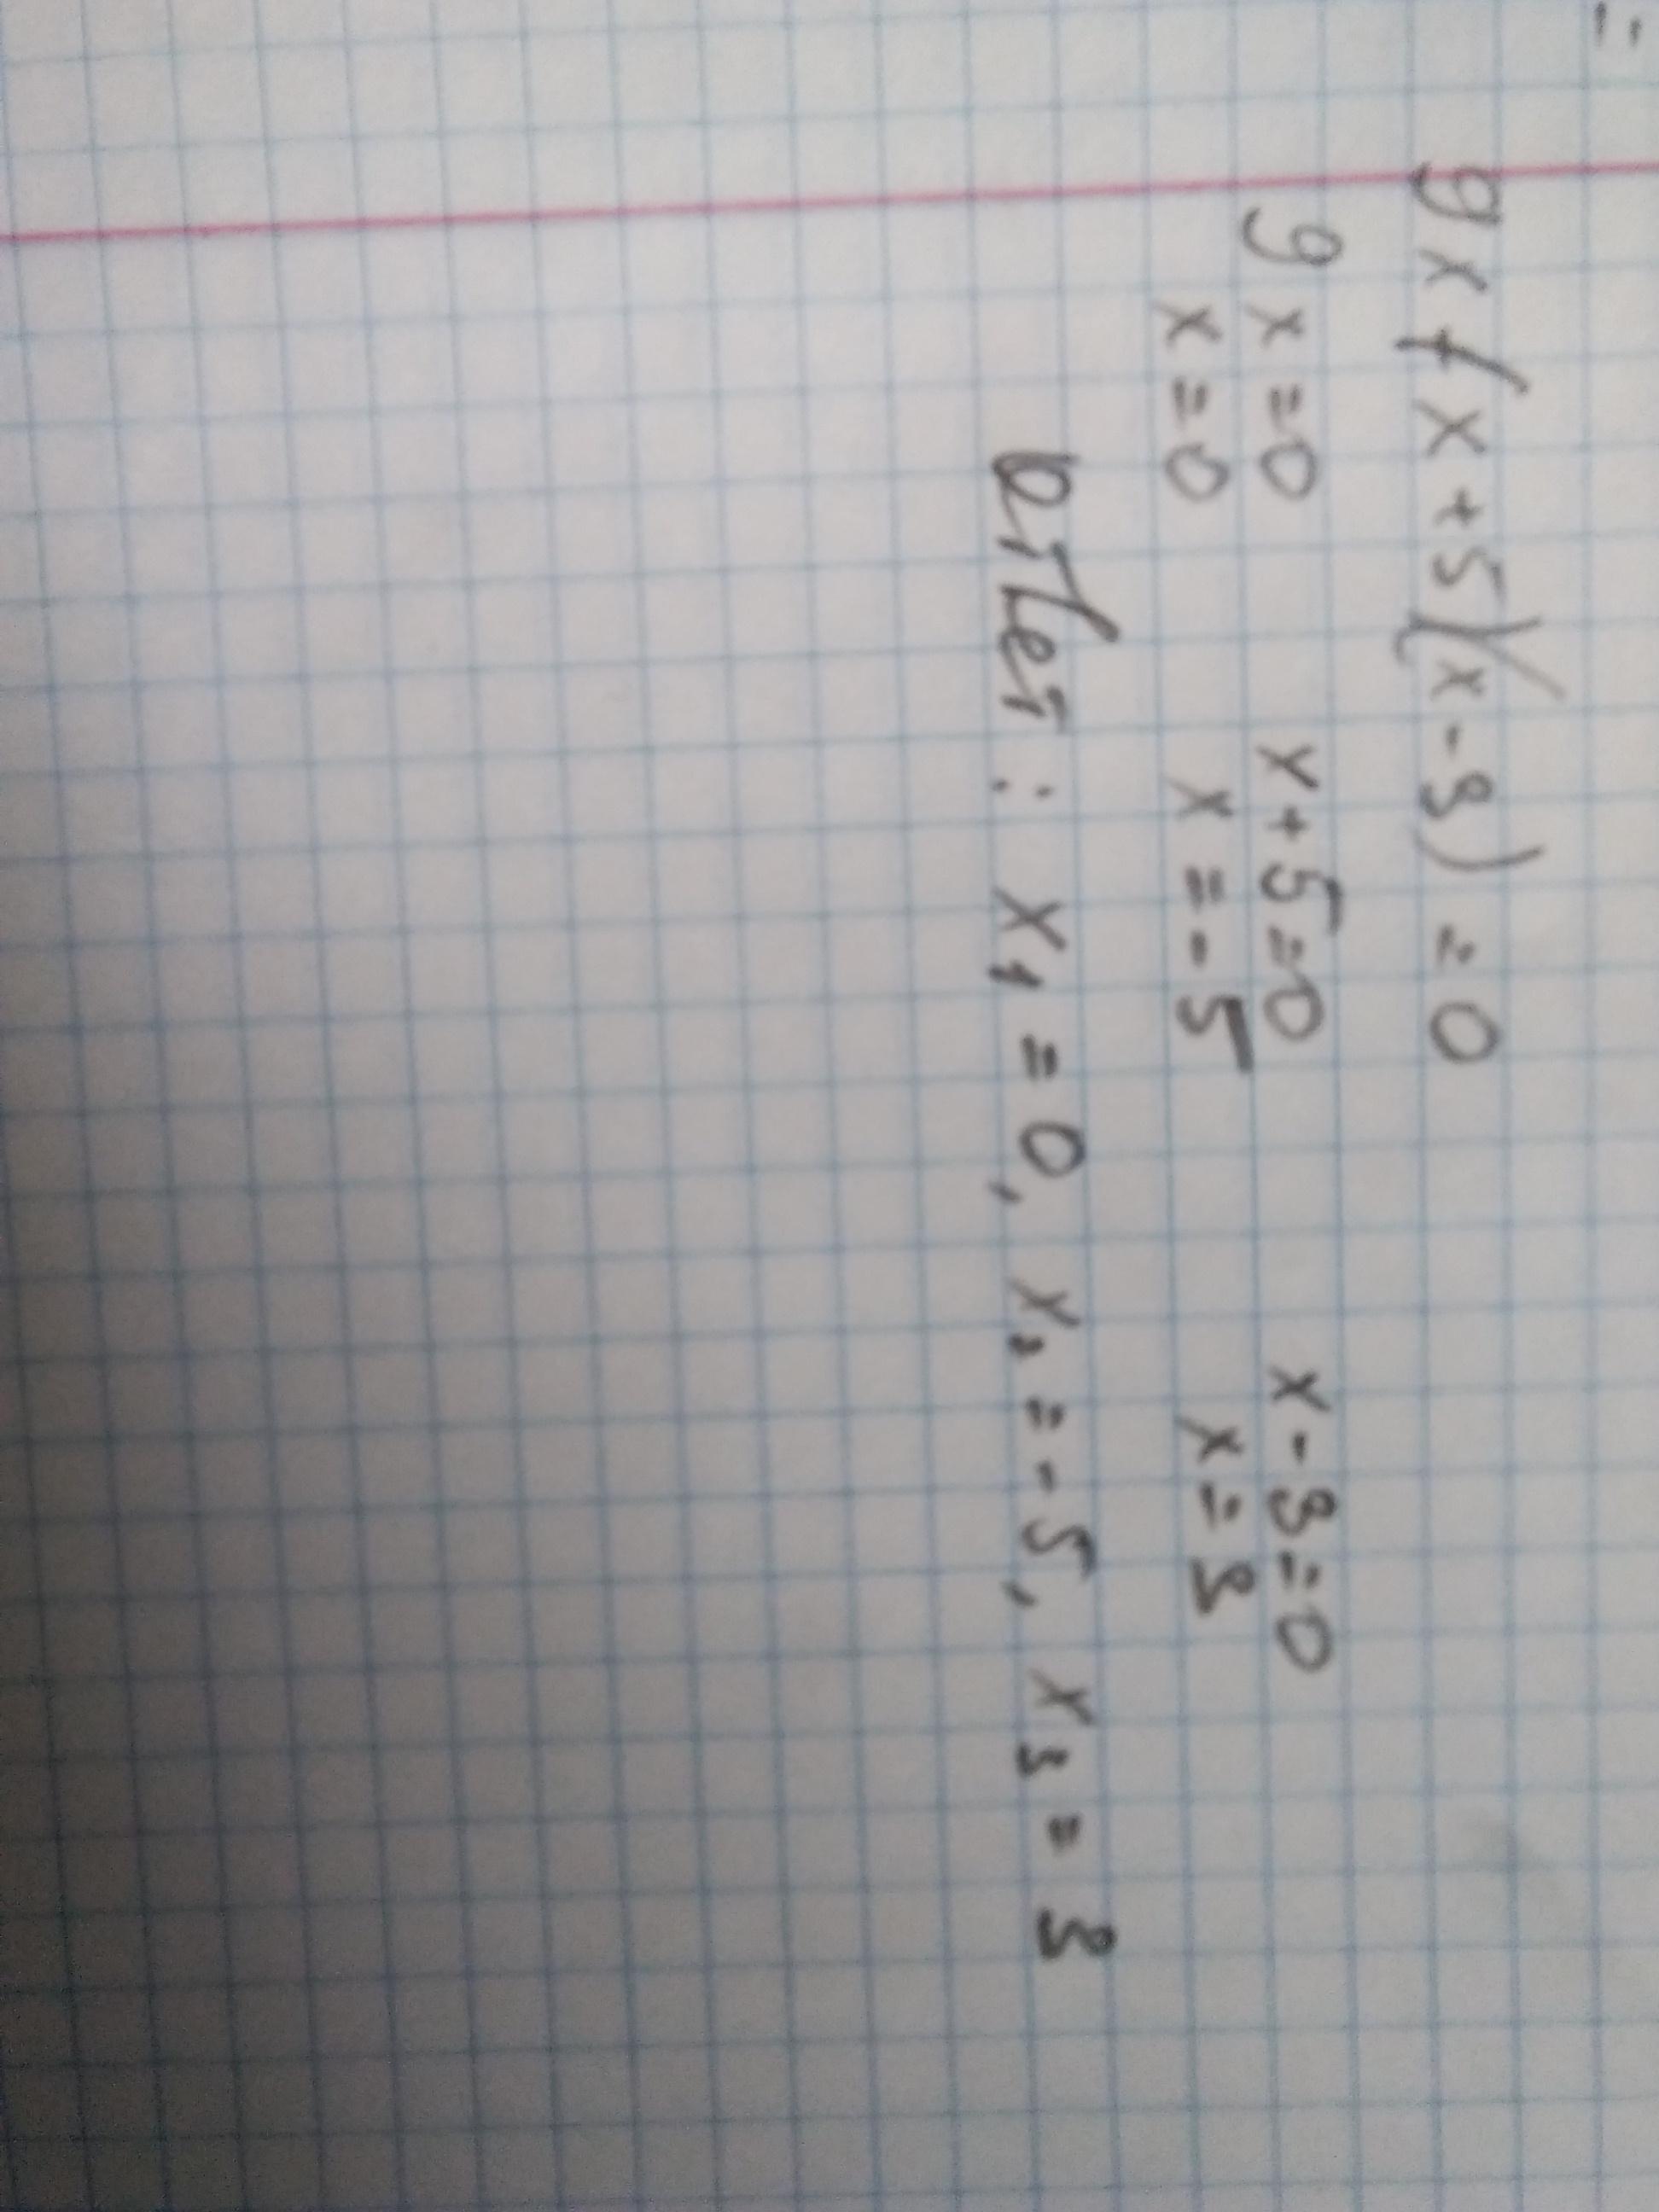 =
9x(x+5)(x-3)=0
9x=0 x+5=0 x-3=0
x=0 x=-5 x=3
Ответ: x₁=0, x₂=-5, x₃=3